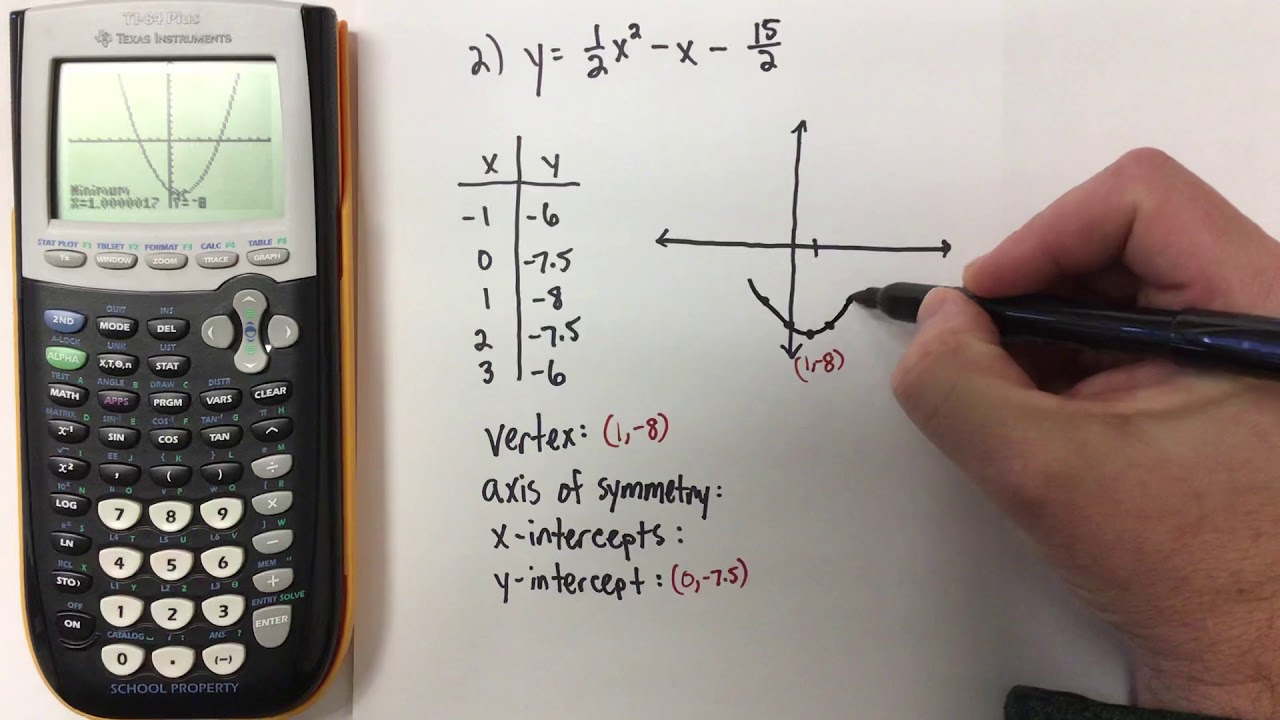 TI-84 Plus
TEXAS INSTRUMENTS
Minimum
X=1.0000017 Y=-8
STAT PLOT F1 TBLSET F2 FORMAT F3 CALC F4 TABLE F5
Y= WINDOW ZOOM TRACE GRAPH
QUIT INS
2ND MODE DEL
A-LOCK LINK LIST
ALPHA X,T,θ,n STAT
TEST A ANGLE B DRAW C DISTR
MATH APPS PRGM VARS CLEAR
MATRIX D SIN⁻¹ E COS⁻¹ F TAN⁻¹ G π H
x⁻¹ SIN COS TAN ^
√ I EE J { K } L e M
x² , ( ) ÷
10ˣ N u O v P w Q [ R
LOG 7 8 9 ×
eˣ S L4 T L5 U L6 V ] W
LN 4 5 6 −
RCL X L1 Y L2 Z L3 θ MEM "
STO› 1 2 3 +
OFF CATALOG ⎵ i : ANS ? ENTRY SOLVE
ON 0 . (−) ENTER
SCHOOL PROPERTY
2) y = 1/2 x² - x - 15/2
x y
-1 -6
0 -7.5
1 -8
2 -7.5
3 -6
(1,-8)
vertex: (1,-8)
axis of symmetry:
x-intercepts:
y-intercept: (0,-7.5)